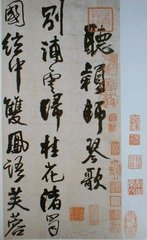 聽穎師琴歌
別浦雲歸桂花渚蜀
國絃中雙鳳語芙蓉